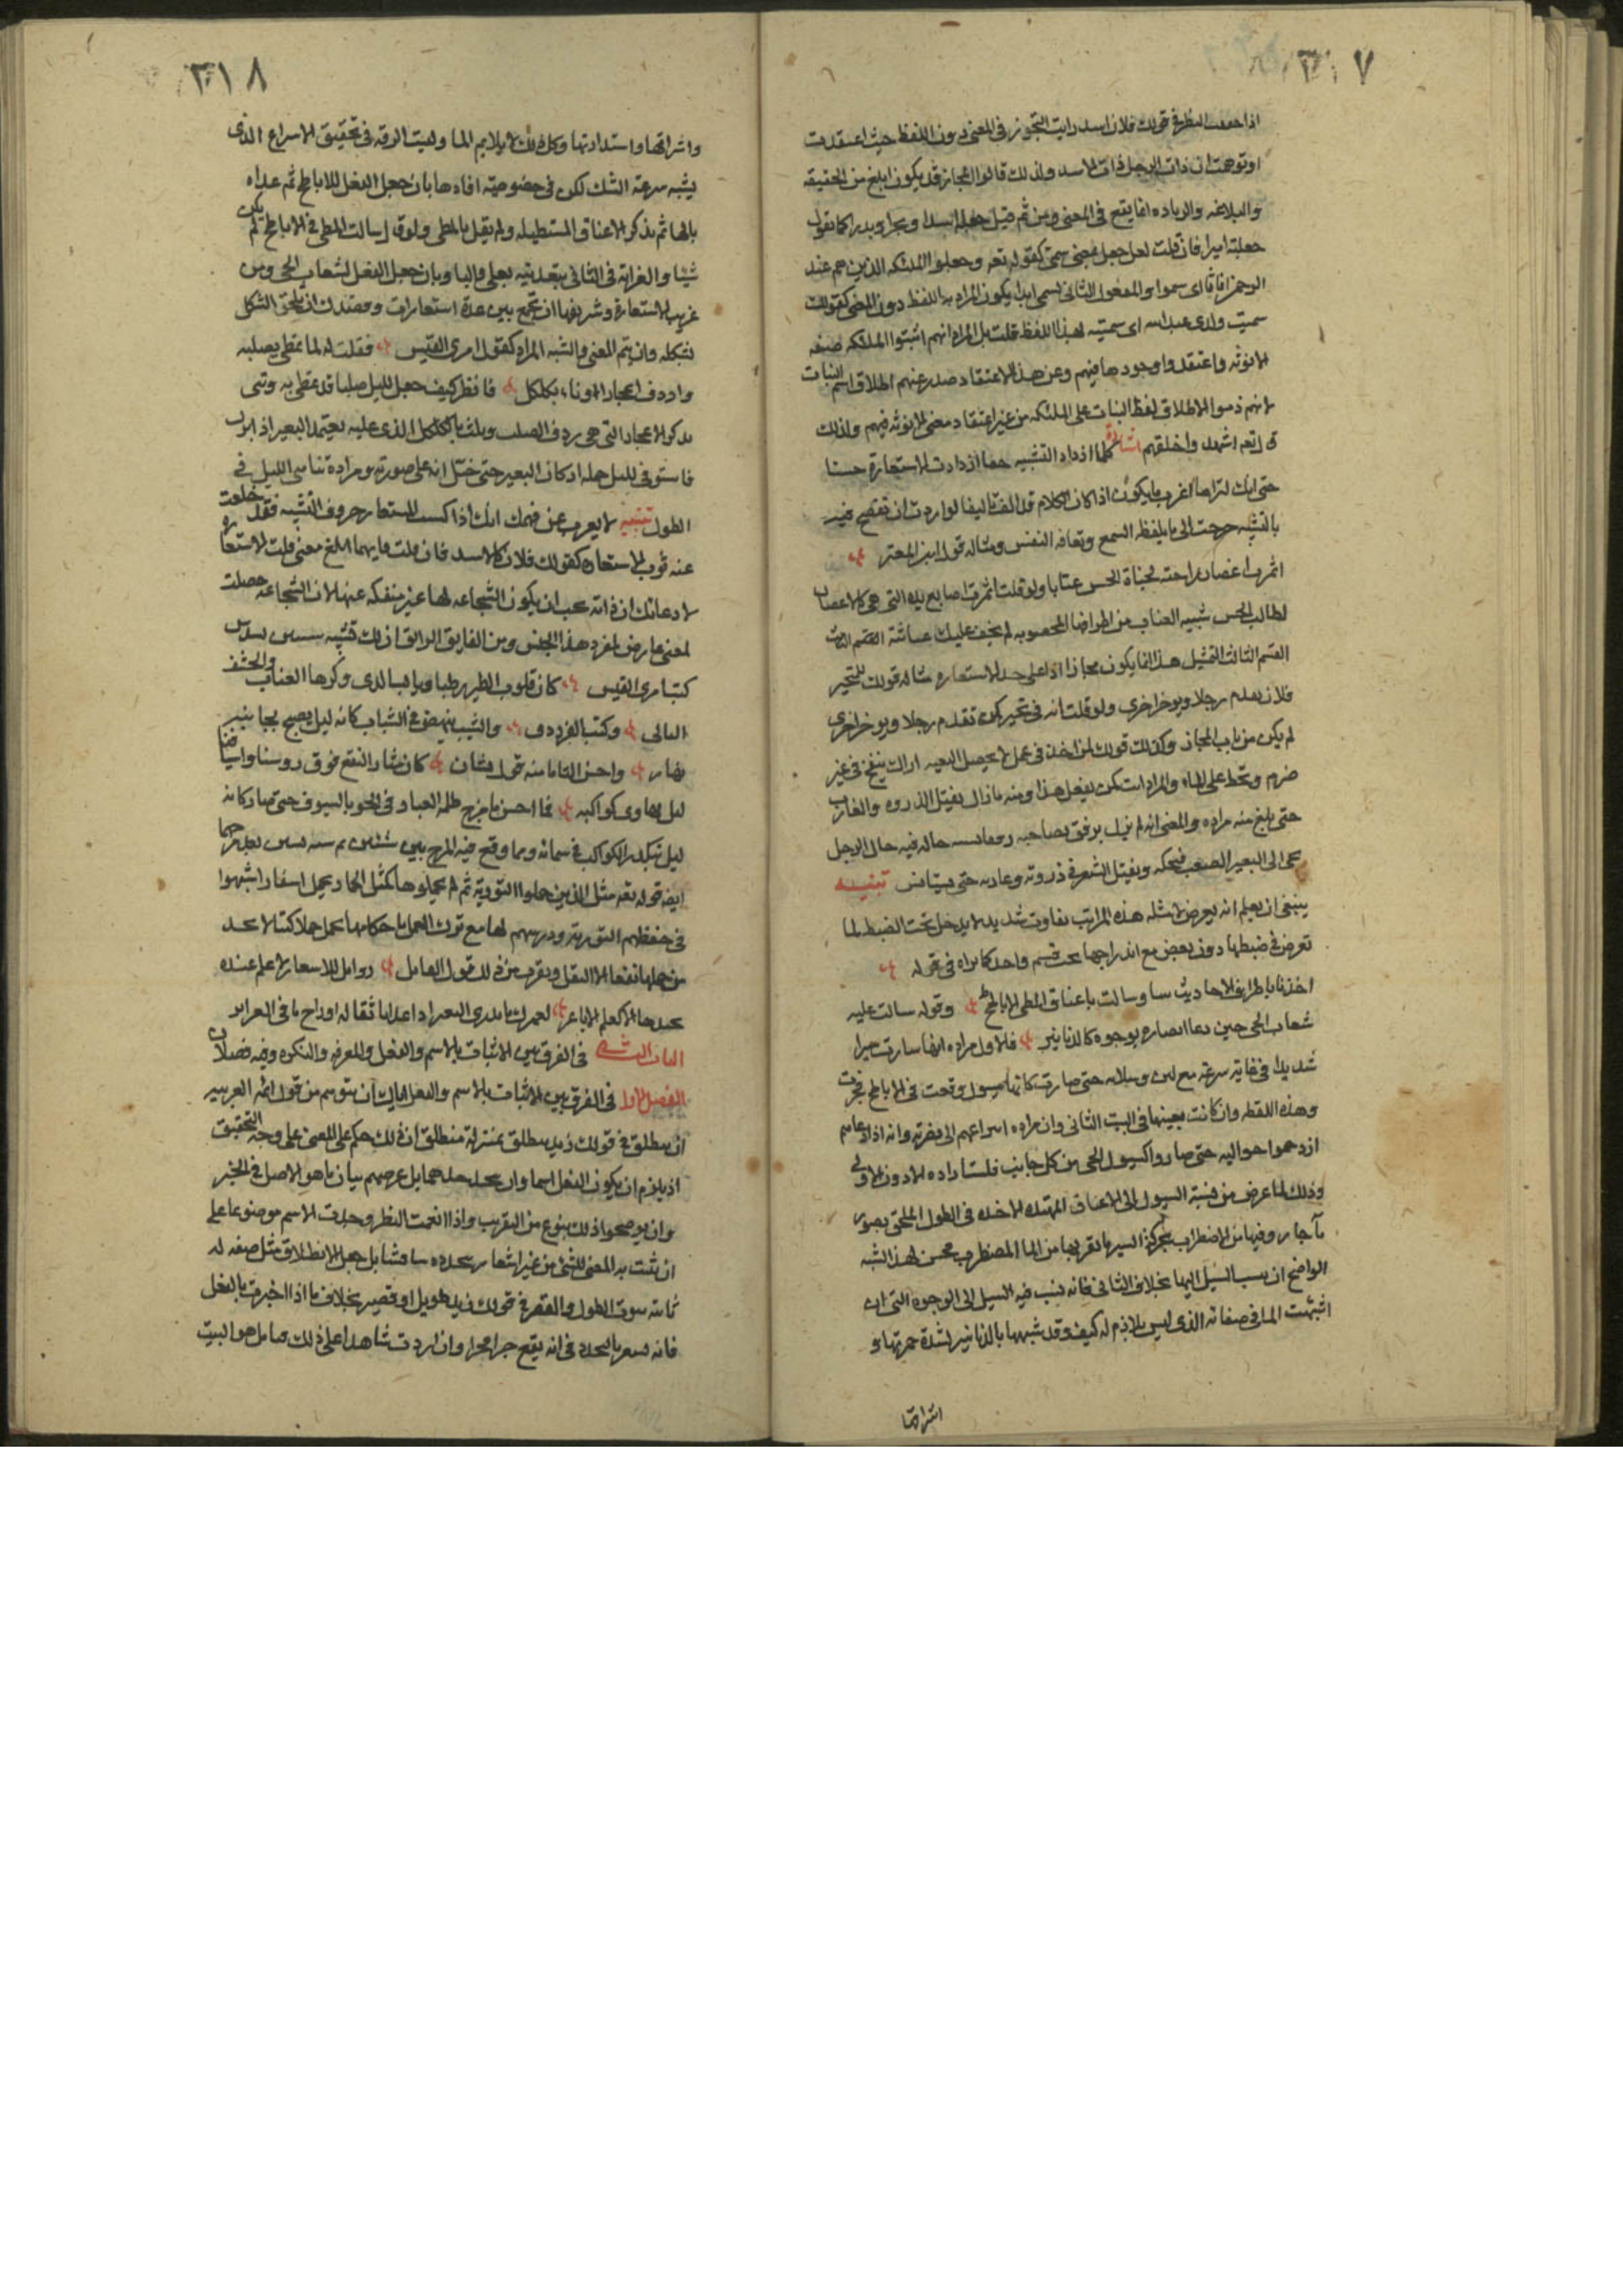 ٣١٧
اذا حققت النظر في قولك فلان اسد رايت التجوز في المعنى دون اللفظ حيث اعتقدت
او توهمت ان ذات الرجل ذات الاسد ولذلك قالوا المجاز قد يكون ابلغ من الحقيقه
والبلاغه والزياده انما يقع في المعنى ومن ثم قيل جعله اسدا وبحرا وبدرا كما تقول
جعلته اميرا فان قلت لعل جعل بمعنى سمى كقوله تعه وجعلوا الملئكه الذين هم عند
الرحمن اناثا اى سموا والمفعول الثانى لسمى ابدا يكون المراد به اللفظ دون المعنى كقولك
سميت ولدى عبد الله اى سميته بهذا اللفظ قلت بل المراد انهم اثبتوا للملئكه صفه
الانوثه واعتقدوا وجودها فيهم وعن هذا الاعتقاد صدر عنهم اطلاق اسم البنات
لانهم ذموا لاطلاق لفظ البنات على الملئكه من غير اعتقاد معنى الانوثه فيهم ولذلك
قال تعه اشهدوا خلقهم اشارة كلما ازداد التشبيه خفا ازدادت الاستعارة حسنا
حتى انك لتراها اغرب ما يكون اذا كان الكلام قد الف تاليفا لو اردت ان تفصح فيه
بالتشبيه خرجت الى ما يلفظه السمع وتعافه النفس ومثاله قول ابن المعتز
اثمرت اغصان راحته لجناة الحسن عنابا ولو قلت اثمرت اصابع يده التى هى كالاغصان
لطالب الحسن شبيه العناب من اطرافها المخضوبه لم يخف عليك غثاثته القسم الثالث
القسم الثالث التمثيل هذا انما يكون مجازا اذا على حد الاستعاره مثاله قولك للمتحير
فلان يقدم رجلا ويؤخر اخرى ولو قلت انه في تحيره كمن تقدم رجلا ويؤخر اخرى
لم يكن من باب المجاز وكذلك قولك لمن اخذ في عمل لا يحصل البغيه اراك تنفخ في غير
ضرم وتخط على الماء والمراد انت كمن يفعل هذا ومنه ما زال يفتل الذروه والغارب
حتى بلغ منه مراده والمعنى انه لم يزل يرفق بصاحبه حاله فيه حال الرجل
يجى الى البعير الصعب فيحكه ويفتل الشعر في ذروته وغاربه حتى يستانس تنبيه
ينبغى ان يعلم انه يعرض لامثله هذه المراتب تفاوت شديد لا يدخل تحت الضبط لما
تعرض في ضبطها دون بعض مع اندراجها تحت قسم واحد كما تراه في قوله
اخذنا باطراف الاحاديث بيننا وسالت باعناق المطى الاباطح وقوله سالت عليه
شعاب الحى حين دعا انصاره بوجوه كالدنانير فالاول مراده انها سارت سيرا
شديدا في غاية سرعة مع لين وسلاسه حتى صارت كانها سيول وقعت في الاباطح فجرت
وهذه اللفظه وان كانت بعينها في البيت الثانى وان مراده اسراعهم الى نصرته وانه اذا دعاهم
ازدحموا حواليه حتى صاروا كسيول الحى من كل جانب فلست اراده الا دون الاولى
وذلك لما عرض من نسبة السيول الى الاعناق الممتده الاخذه في الطول الملحق بصور
ماء جار وفيها من الاضطراب بحركة السير ما يقربها من الماء المضطرب فحسن لهذا الشبه
الواضح ان ينسب السيل اليها بخلاف الثانى فانه ينسب فيه السيل الى الوجوه التى ان
اشبهت الما في صفاته الذى ليس بلازم له كيف وقد شبهها بالدنانير لشدة حمرتها و
اشراقها
٣١٨
واشراقها واستدارتها وكل ذلك لا يلايم الما وليت الوقه في تحقيق الاسراع الذى
يشبه سرعة الشك لكن في خصوصيته افادها بان جعل الفعل للاباطح ثم عداه
بالبا ثم بذكر الاعناق المستطيله ولم يقل بالمطى ولو قال سالت المطى في الاباطح لم يكن
شيئا والغرابة في الثانى بتعديته بعلى والبا وبان جعل الفعل لشعاب الحى ومن
غريب الاستعارة وشريفها ان تجمع بين عدة استعارات وقصدك ان تلحق الشكل
بشكله وان يتم المعنى والشبه المراد كقول امرى القيس فقلت له لما تمطى بصلبه
واردف اعجازا وناء بكلكل فانظر كيف جعل لليل صلبا قد تمطى به وثنى
بذكر الاعجاز التى هى ردف الصلب وثلث بالكلكل الذى عليه يعتمد البعير اذا برك
فاستوفى لليل جمله اركان البعير حتى خيل انه على صورته ومراده تناسى الليل في
الطول تنبيه لا يعزب عن فهمك انك اذا كسيت المستعار حروف التشبيه فقد خلعت
عنه ثوب الاستعاره كقولك فلان كالاسد فان قلت فايهما ابلغ معنى قلت الاستعاره
لادعائك ان ذاته يجب ان يكون الشجاعه لها غير منفكه عنها لان الشجاعه حصلت
لمعنى عارض لمفرد هذا الجنس ومن الفايق الرايق ان لك تشبيه شيئين بشيئين
كبيت امرى القيس كان قلوب الطير رطبا ويابسا لدى وكرها العناب والحشف
البالى وكبيت الفرزدق والشيب ينهض في الشباب كانه ليل يصيح بجانبيه
نهار واحسن التيامنا منه قول بشار كان مثار النقع فوق روسنا واسيافنا
ليل تهاوى كواكبه فما احسن ما مزج ظلمه الغبار في الجو بالسيوف حتى صار كانه
ليل تكدر الكواكب في سمائه ومما وقع فيه المزج بين شيئين
ايضا قوله تعه مثل الذين حملوا التورية ثم لم يحملوها كمثل الحمار يحمل اسفارا شبهوا
في حفظهم التورية ودرسهم لها مع ترك العمل باحكامها بحمل جملا كتبا لا يجد
من حملها نفعا الا الثقل ويقرب من ذلك قول القايل زوامل للاسعار لا علم عنده
بجيدها الا كعلم الاباعر لعمرك ما يدرى البعير اذا غدا باثقاله او راح ما في الغراير
الباب الثانى في الفرق بين الاثبات بالاسم والفعل والمعرفه والنكره وفيه فصلان
الفصل الاول في الفرق بين الاثبات بالاسم والفعل اياك ان تتوهم من قول ائمه العربيه
ان ينطلق في قولك زيد ينطلق بمنزلة منطلق ان ذلك حكم على المعنى على وجه التحقيق
اذ يلزم ان يكون الفعل اسما وان يحد حدهما بل غرضهم بيان ما هو الاصل في الخبر
وان يوضحوا ذلك بنوع من التقريب واذا انعمت النظر وجدت الاسم موضوعا على
ان تثبت به المعنى للشئ من غير اشعار بتجدده شيئا فشيئا بل جعل الانطلاق مثل صفه له
ثابته ثبوت الطول والقصر في قولك زيد طويل او قصير بخلاف ما اذا اخبرت بالفعل
فانه يشعر بالتجدد في انه يقع جزا فجزا وان اردت شاهدا على ذلك فتامل هو البيت